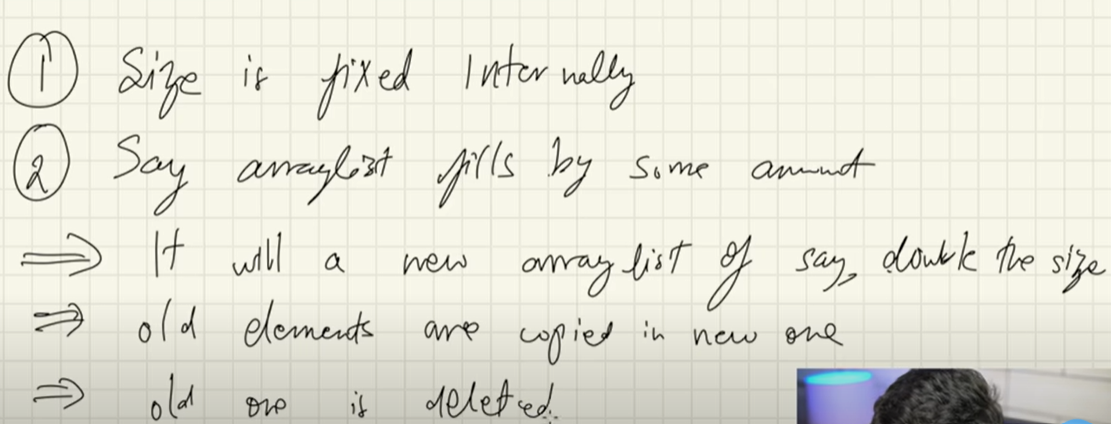 1 Size is fixed Internally
2 Say arraylist fills by some amount
⇒ It will a new arraylist of say, double the size
⇒ old elements are copied in new one
⇒ old one is deleted.